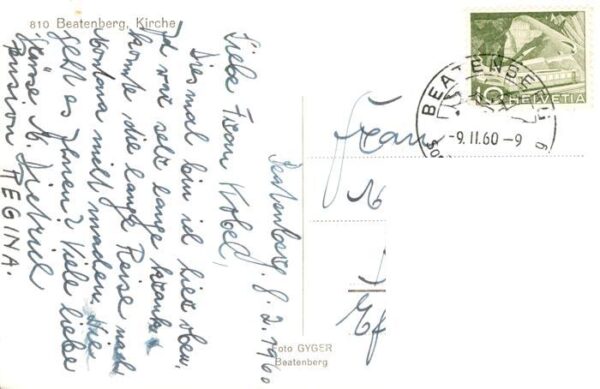 810 Beatenberg, Kirche
Beatenberg, 8.2.1960
Liebe Frau Kobel,
Diesmal bin ich hier oben,
Ich war sehr lange krank &
konnte die lange Reise nach
nicht machen. Wie
geht es Ihnen? Viele liebe
Grüsse A. Dietrich
Pension REGINA.
Foto GYGER
Beatenberg
Frau
HELVETIA
10
BEATENBERG
-9.II.60-9